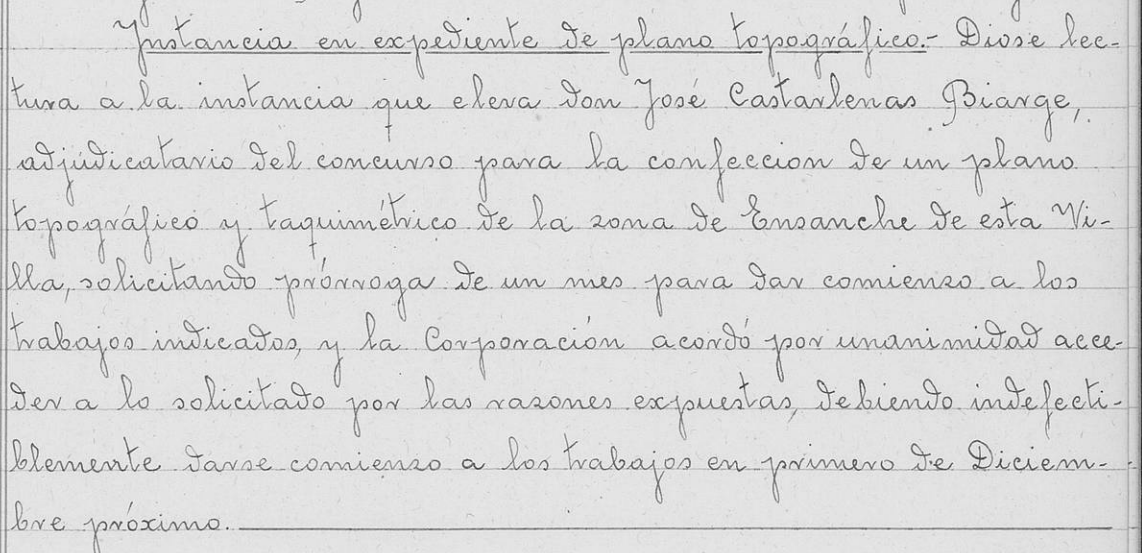 Instancia en expediente de plano topográfico.- Diose lec-
tura a la instancia que eleva don José Castarlenas Biarge,
adjudicatario del concurso para la confeccion de un plano
topográfico y taquimétrico de la zona de Ensanche de esta Vi-
lla, solicitando prórroga de un mes para dar comienzo a los
trabajos indicados, y la Corporación acordó por unanimidad acce-
der a lo solicitado por las razones expuestas, debiendo indefecti-
blemente darse comienzo a los trabajos en primero de Diciem-
bre próximo.